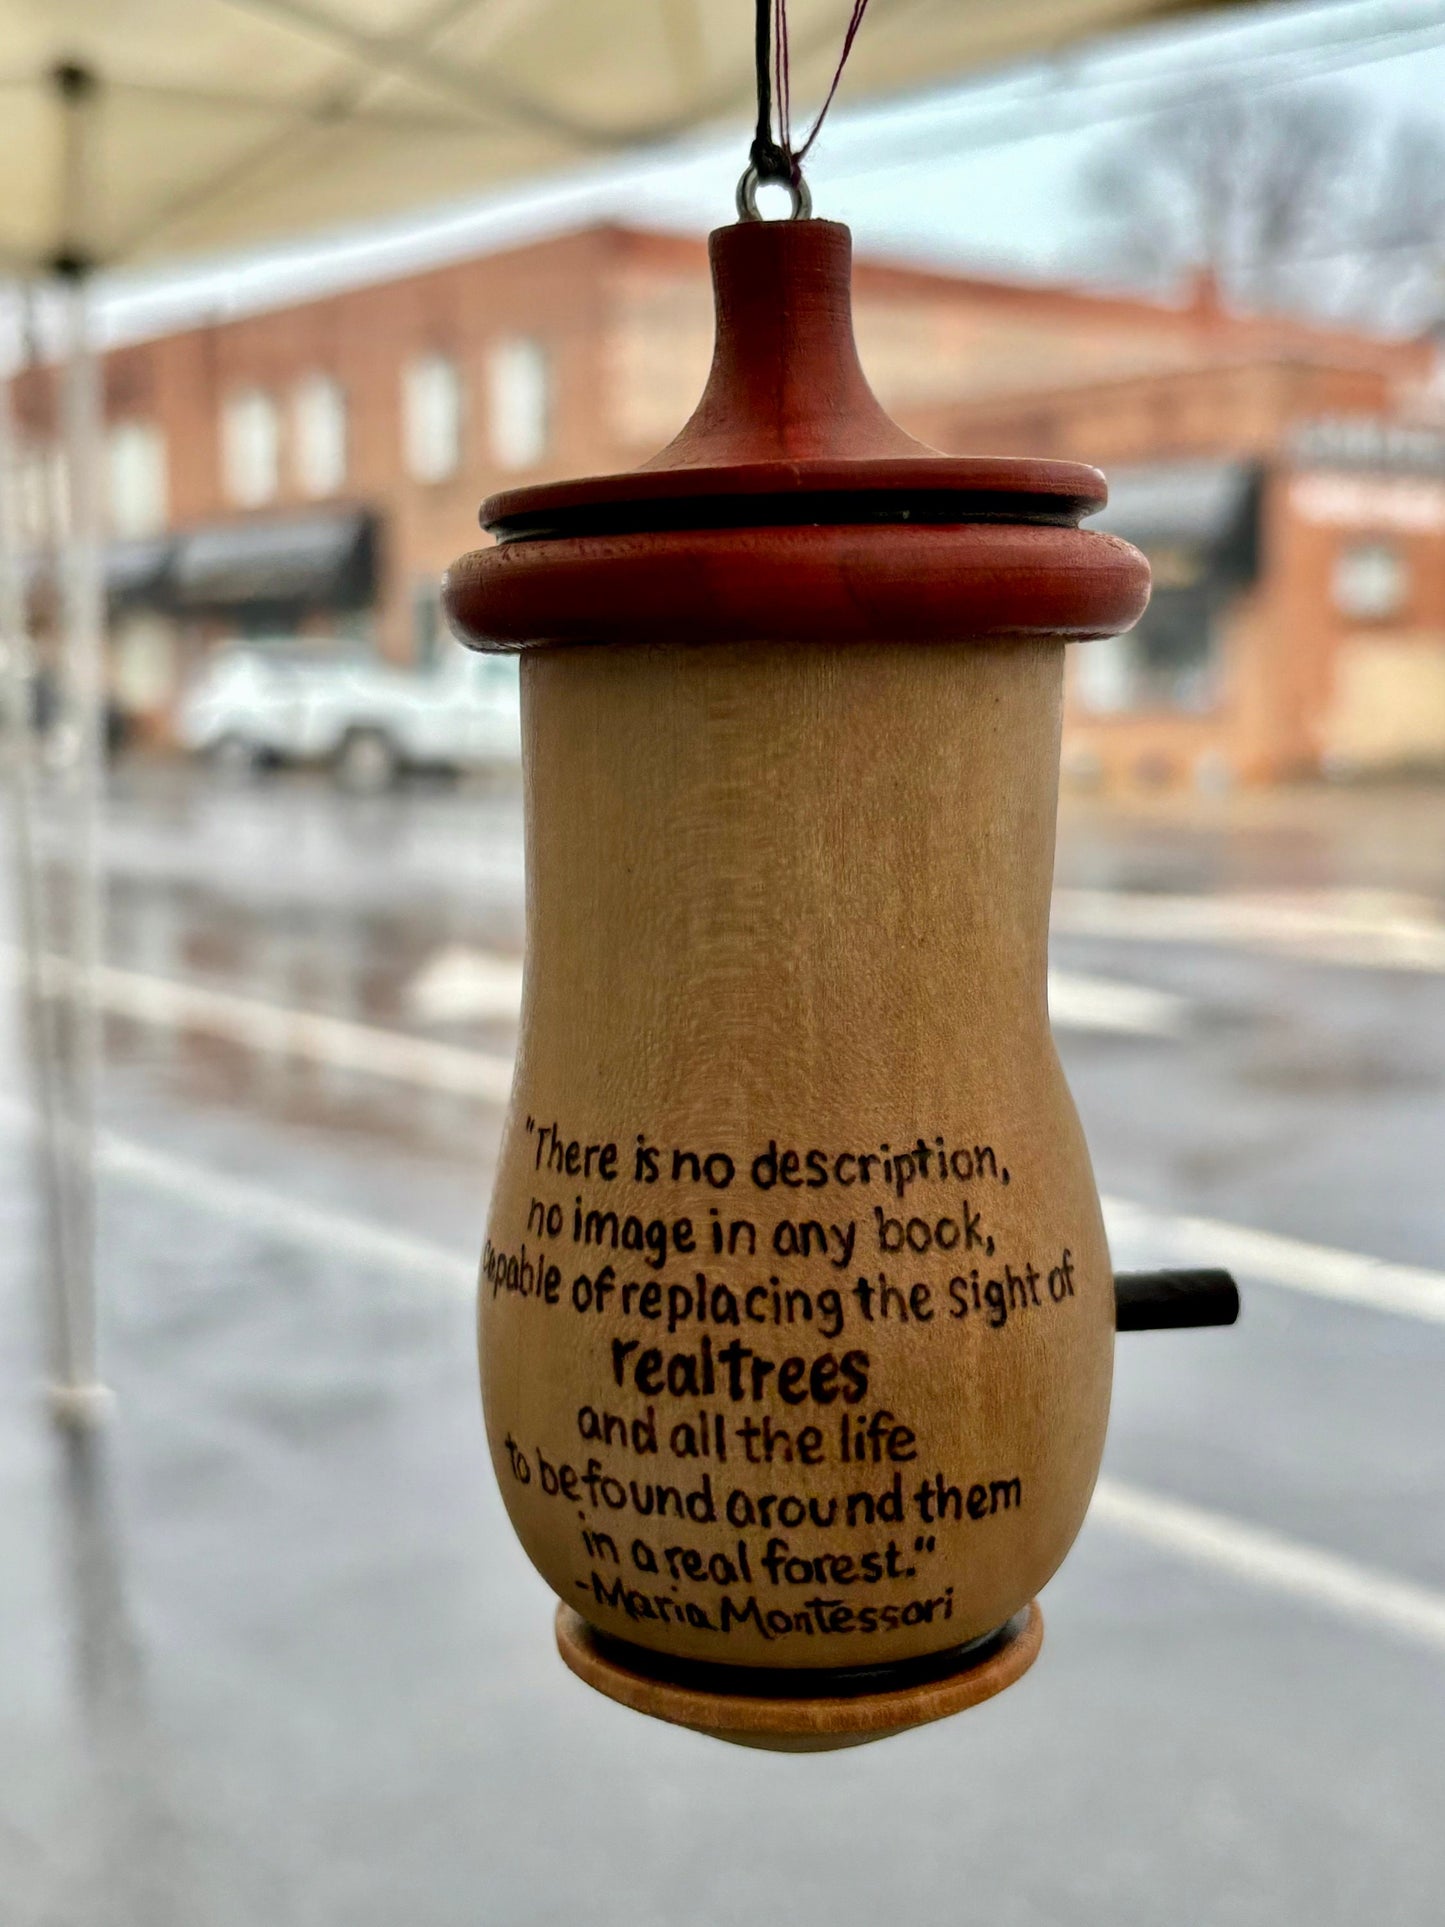 "There is no description,
no image in any book,
capable of replacing the sight of
real trees
and all the life
to be found around them
in a real forest."
-Maria Montessori